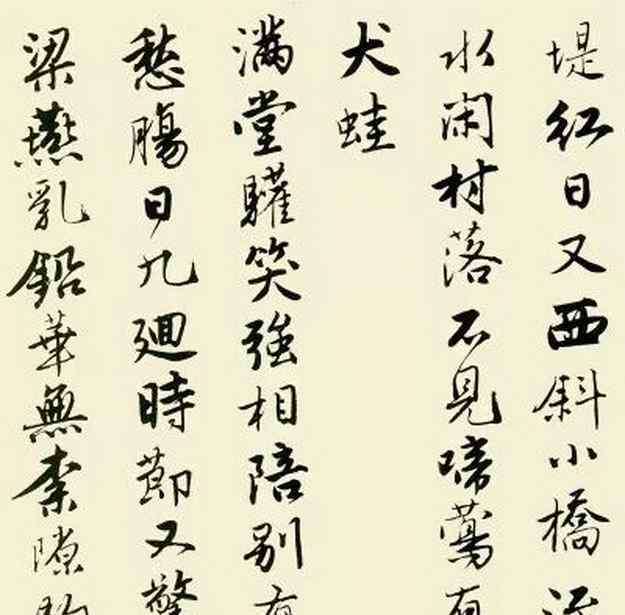 堤紅日又西斜小橋流
水閑村落不見啼鶯有
犬蛙
滿堂驩笑強相陪別有
愁腸日九廻時節又驚
梁燕乳鉛華無柰隙駒